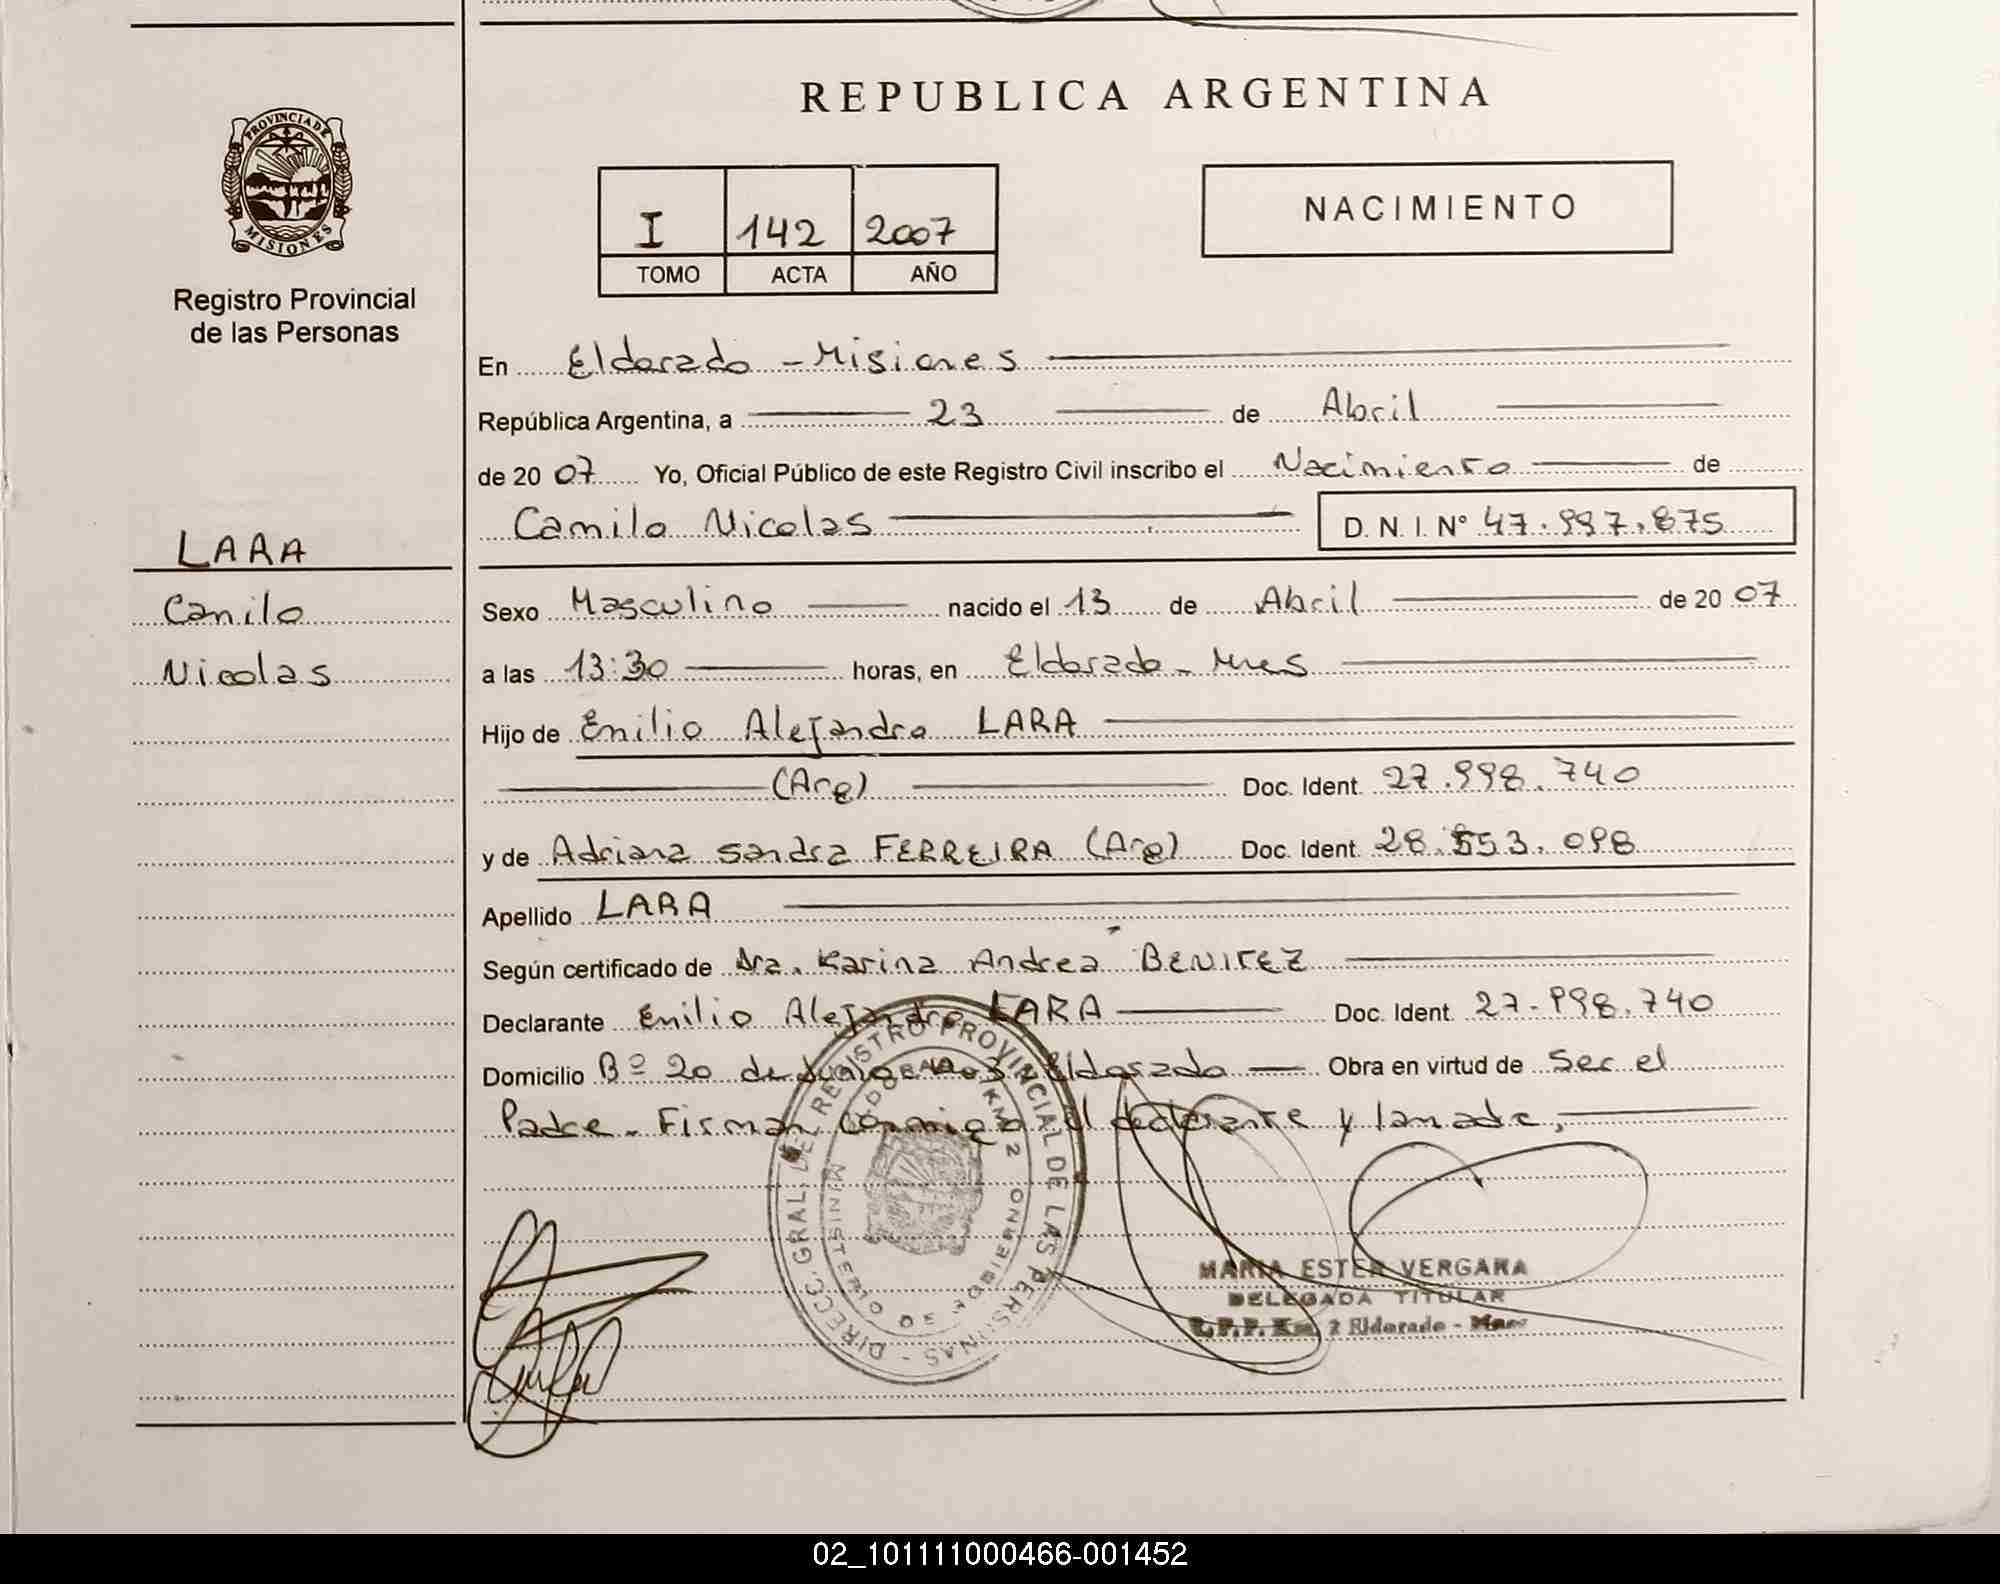 REPUBLICA ARGENTINA
PROVINCIA DE
MISIONES
Registro Provincial
de las Personas
I 142 2007
TOMO ACTA AÑO
NACIMIENTO
En Eldorado - Misiones
República Argentina, a 23 de Abril
de 20 07 Yo, Oficial Público de este Registro Civil inscribo el Nacimiento de
Camilo Nicolas D. N. I. N° 47.997.875
LARA
Camilo
Nicolas
Sexo Masculino nacido el 13 de Abril de 20 07
a las 13:30 horas, en Eldorado - Mnes
Hijo de Emilio Alejandro LARA
(Arg) Doc. Ident. 27.998.740
y de Adriana Sandra FERREIRA (Arg) Doc. Ident. 28.553.098
Apellido LARA
Según certificado de Dra. Karina Andrea BENITEZ
Declarante Emilio Alejandro LARA Doc. Ident. 27.998.740
Domicilio Bº 20 de Junio Eldorado Obra en virtud de ser el
Padre - Firman conmigo el declarante y la madre,
DIRECC. GRAL. DEL REGISTRO PROVINCIAL DE LAS PERSONAS
MINISTERIO DE GOBIERNO
KM 2
MARIA ESTER VERGARA
DELEGADA TITULAR
R.P.P. Km 2 Eldorado - Mnes
02_101111000466-001452